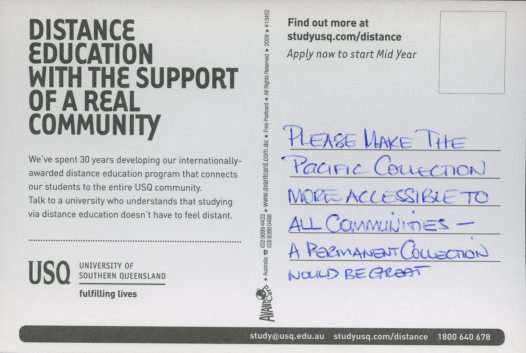 DISTANCE
EDUCATION
WITH THE SUPPORT
OF A REAL
COMMUNITY
We've spent 30 years developing our internationally-
awarded distance education program that connects
our students to the entire USQ community.
Talk to a university who understands that studying
via distance education doesn't have to feel distant.
USQ
UNIVERSITY OF
SOUTHERN QUEENSLAND
fulfilling lives
www.avantcard.com.au ★ Free Postcard ★ All Rights Reserved ★ 2009 ★ #13452
★ Australia
AVANT CARD
Find out more at
studyusq.com/distance
Apply now to start Mid Year
PLEASE MAKE THE
PACIFIC COLLECTION
MORE ACCESSIBLE TO
ALL COMMUNITIES —
A PERMANENT COLLECTION
WOULD BE GREAT
study@usq.edu.au studyusq.com/distance 1800 640 678